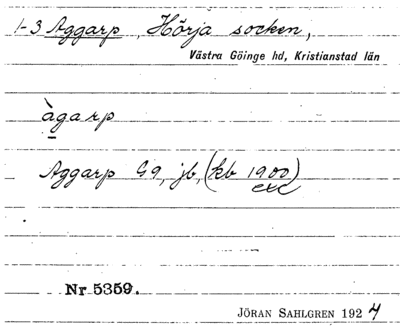 1-3 Aggarp, Hörja socken,
Västra Göinge hd, Kristianstad län
àgarp
Aggarp G9, jb, (kb 1900)
exc
Nr 5359.
JÖRAN SAHLGREN 1924